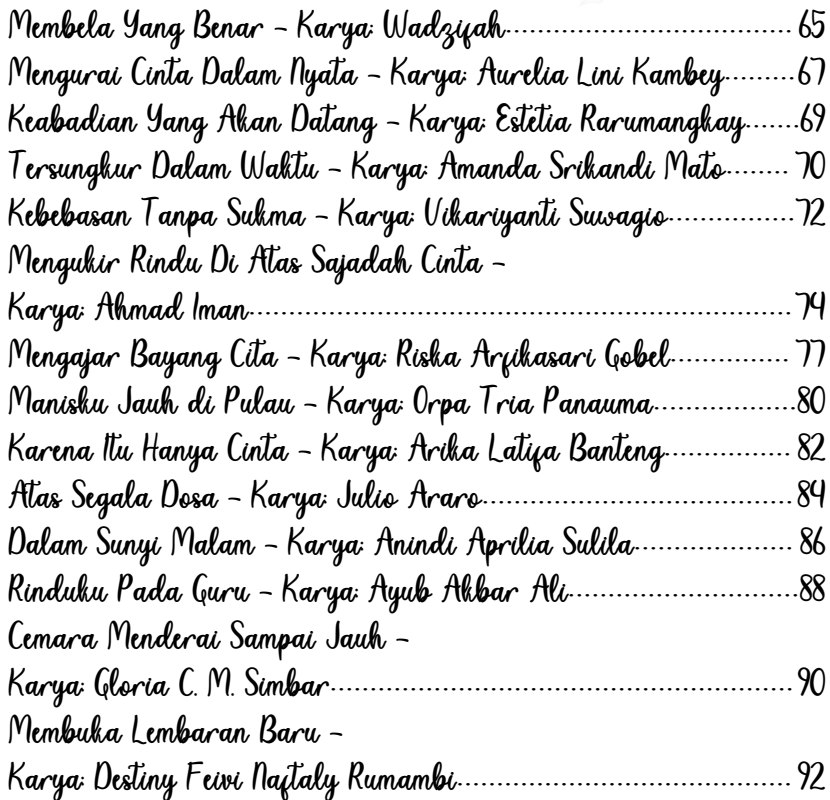 Membela Yang Benar – Karya: Wadzifah............................... 65
Mengurai Cinta Dalam Nyata – Karya: Aurelia Lini Kambey........67
Keabadian Yang Akan Datang – Karya: Estetia Rarumangkay......69
Tersungkur Dalam Waktu – Karya: Amanda Srikandi Mato....... 70
Kebebasan Tanpa Sukma – Karya: Vikariyanti Suwagio..............72
Mengukir Rindu Di Atas Sajadah Cinta –
Karya: Ahmad Iman........................................................... 74
Mengajar Bayang Cita – Karya: Riska Arfikasari Gobel............. 77
Manisku Jauh di Pulau – Karya: Orpa Tria Panauma...............80
Karena Itu Hanya Cinta – Karya: Arika Latifa Banteng............. 82
Atas Segala Dosa – Karya: Julio Araro..................................84
Dalam Sunyi Malam – Karya: Anindi Aprilia Sulila................. 86
Rinduku Pada Guru – Karya: Ayub Akbar Ali.........................88
Cemara Menderai Sampai Jauh –
Karya: Gloria C. M. Simbar.................................................. 90
Membuka Lembaran Baru –
Karya: Destiny Feivi Naftaly Rumambi.................................... 92